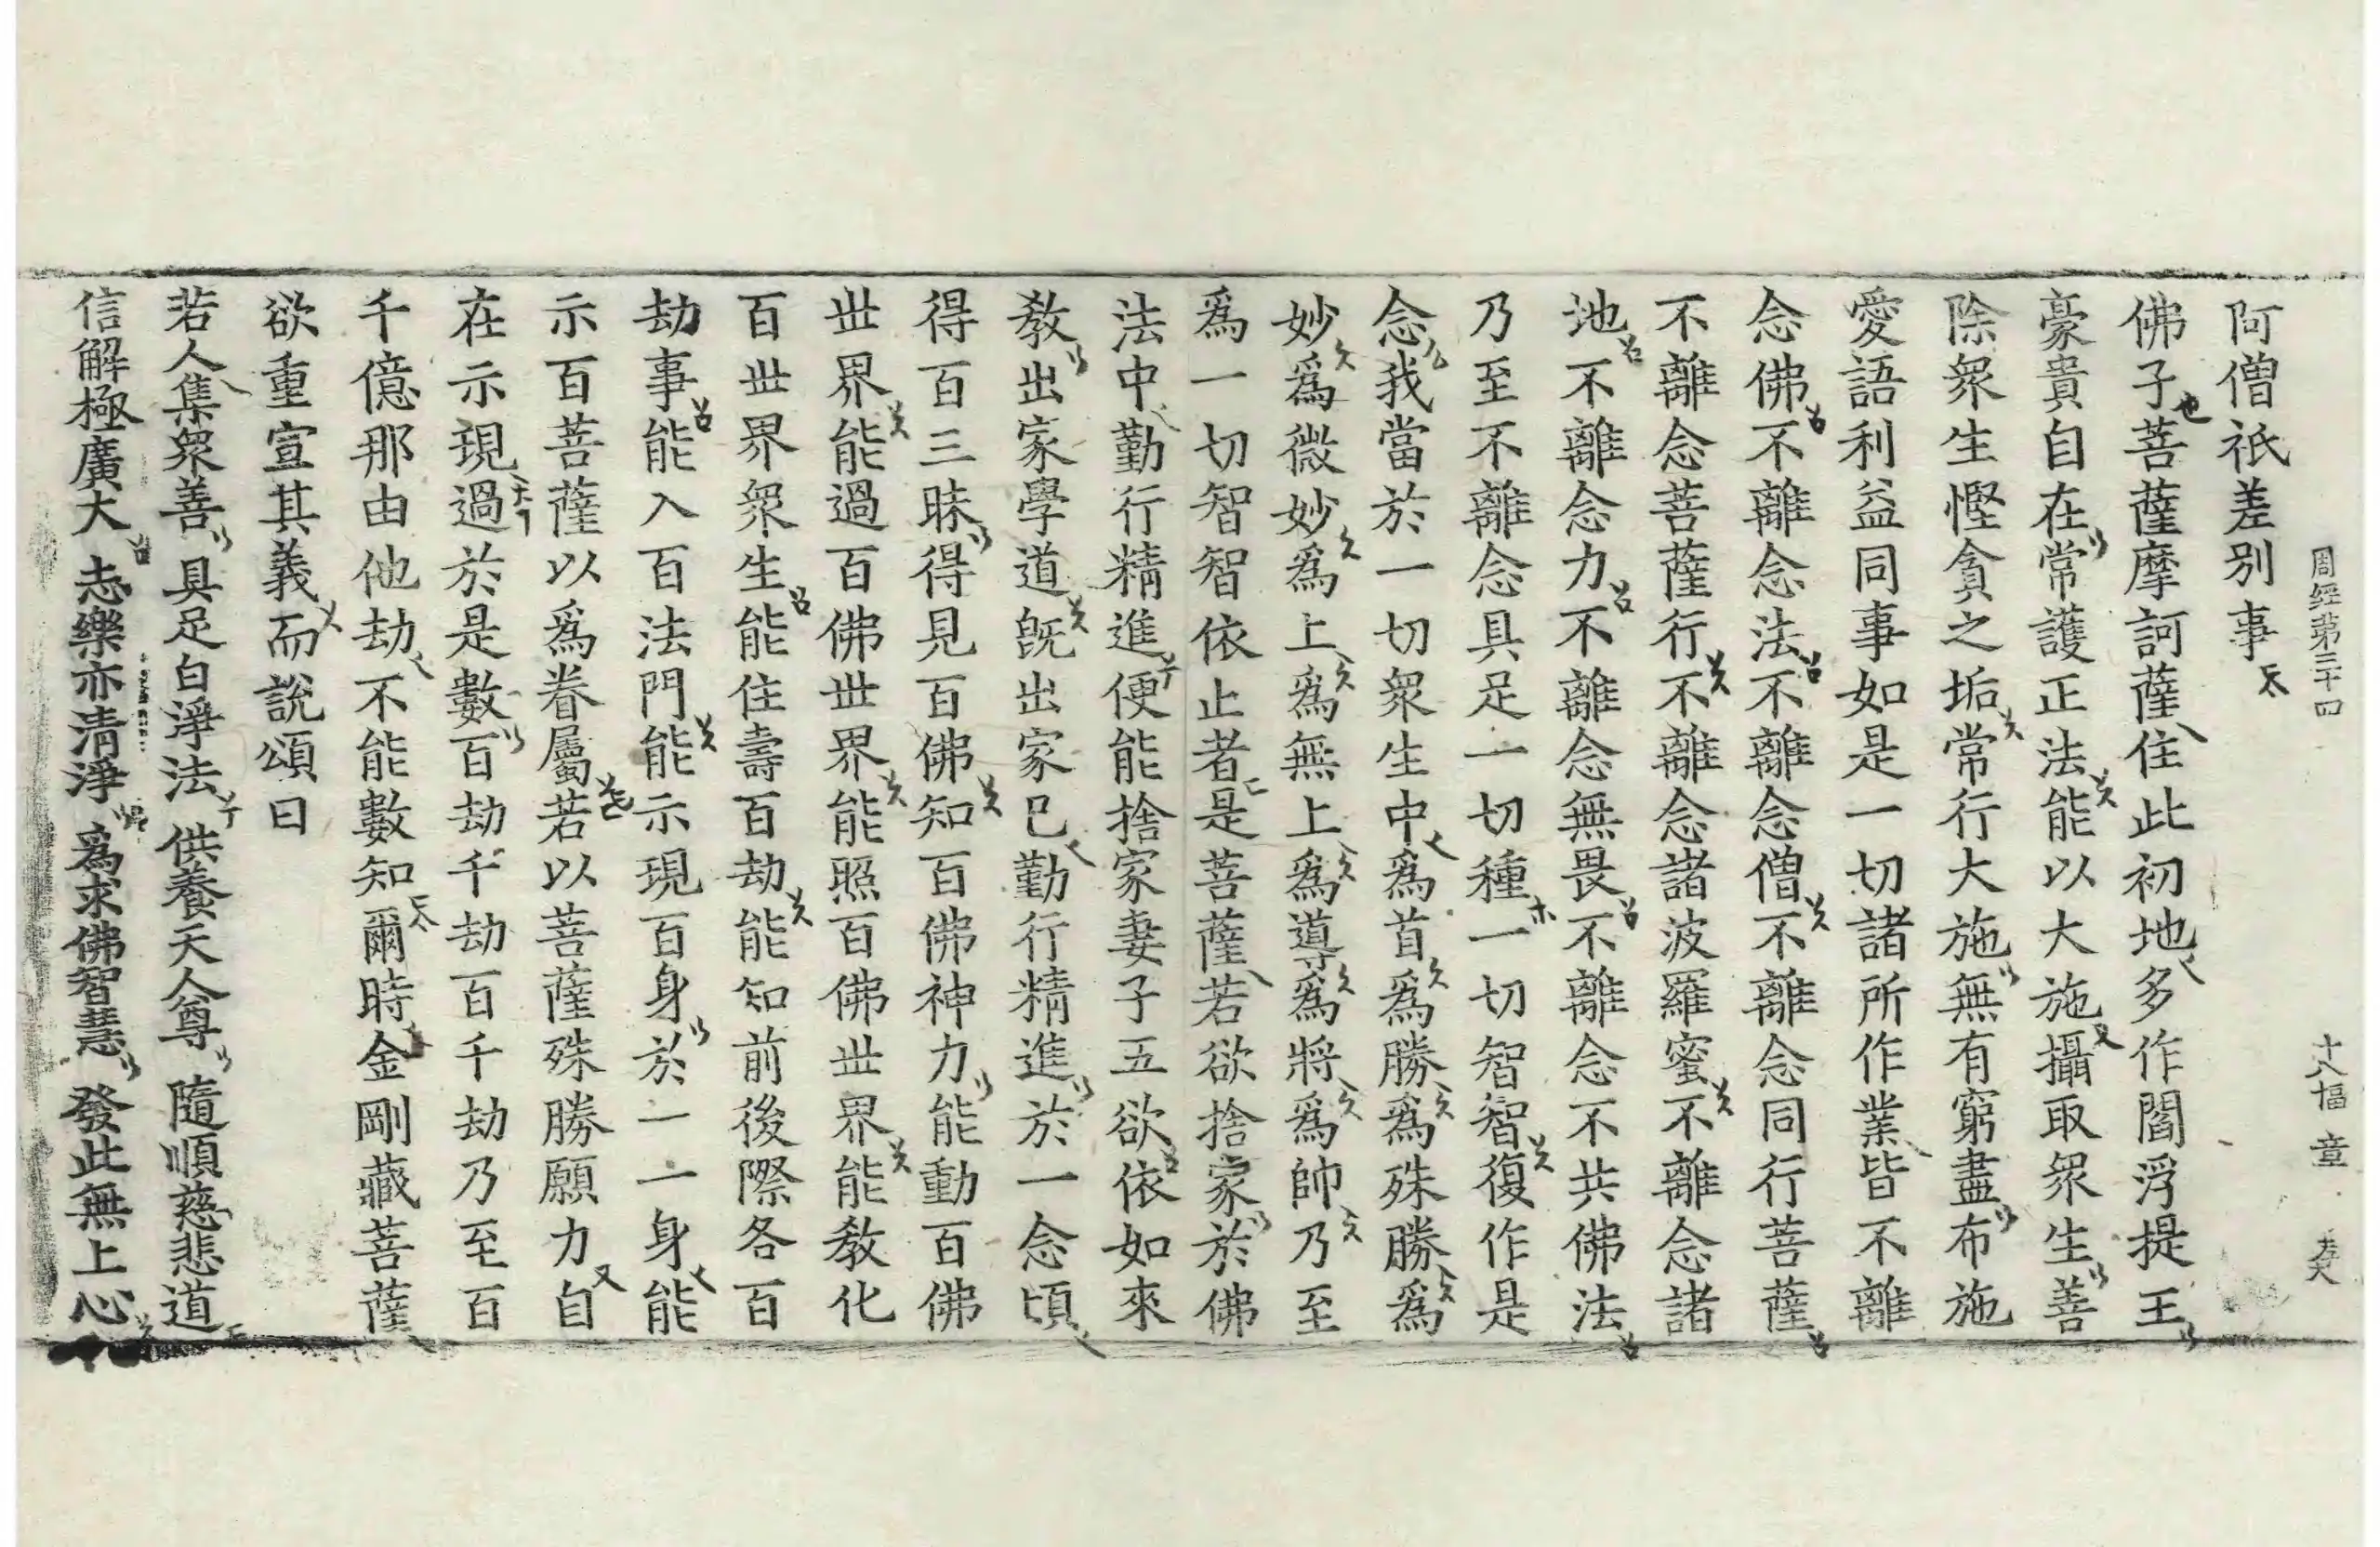 周經第三十四 十八幅 章
阿僧祇差別事
佛子菩薩摩訶薩住此初地多作閻浮提王
豪貴自在常護正法能以大施攝取衆生善
除衆生慳貪之垢常行大施無有窮盡布施
愛語利益同事如是一切諸所作業皆不離
念佛不離念法不離念僧不離念同行菩薩
不離念菩薩行不離念諸波羅蜜不離念諸
地不離念力不離念無畏不離念不共佛法
乃至不離念具足一切種一切智智復作是
念我當於一切衆生中爲首爲勝爲殊勝爲
妙爲微妙爲上爲無上爲導爲將爲帥乃至
爲一切智智依止者是菩薩若欲捨家於佛
法中勤行精進便能捨家妻子五欲依如來
教出家學道旣出家已勤行精進於一念頃
得百三昧得見百佛知百佛神力能動百佛
世界能過百佛世界能照百佛世界能教化
百世界衆生能住壽百劫能知前後際各百
劫事能入百法門能示現百身於一一身能
示百菩薩以爲眷屬若以菩薩殊勝願力自
在示現過於是數百劫千劫百千劫乃至百
千億那由他劫不能數知爾時金剛藏菩薩
欲重宣其義而說頌曰
若人集衆善 具足白淨法 供養天人尊 隨順慈悲道
信解極廣大 志樂亦清淨 爲求佛智慧 發此無上心